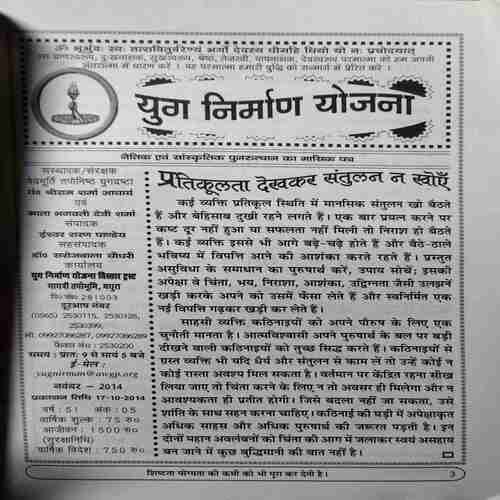 ॐ भूर्भुवः स्वः तत्सवितुर्वरेण्यं भर्गो देवस्य धीमहि धियो यो नः प्रचोदयात्
उस प्राणस्वरूप, दुःखनाशक, सुखस्वरूप, श्रेष्ठ, तेजस्वी, पापनाशक, देवस्वरूप परमात्मा को हम अपनी
अंतरात्मा में धारण करें । वह परमात्मा हमारी बुद्धि को सन्मार्ग में प्रेरित करे ।
युग निर्माण योजना
नैतिक एवं सांस्कृतिक पुनरुत्थान का मासिक पत्र
संस्थापक/संरक्षक
वेदमूर्ति तपोनिष्ठ युगद्रष्टा
पं० श्रीराम शर्मा आचार्य
एवं
माता भगवती देवी शर्मा
संपादक
ईश्वर शरण पाण्डेय
सहसंपादक
डॉ० सरोजबाला चौधरी
कार्यालय
युग निर्माण योजना विस्तार ट्रस्ट
गायत्री तपोभूमि, मथुरा
पि० कोड 281003
दूरभाष नंबर
(0565) 2530115, 2530128,
2530399,
मो. 09927086287, 09927086289
फैक्स नं० : 2530200
समय : प्रातः 9 से सायं 5 बजे
ई-मेल:
yugnirman@awgp.org
नवंबर – 2014
प्रकाशन तिथि 17-10-2014
वर्ष : 51 अंक : 05
वार्षिक शुल्क : 75 रु०
आजीवन : 1500 रु०
(सुरक्षानिधि)
वार्षिक विदेश : 750 रु०
प्रतिकूलता देखकर संतुलन न खोएँ
कई व्यक्ति प्रतिकूल स्थिति में मानसिक संतुलन खो बैठते
हैं और बेहिसाब दुखी रहने लगते हैं। एक बार प्रयत्न करने पर
कष्ट दूर नहीं हुआ या सफलता नहीं मिली तो निराश हो बैठते
हैं। कई व्यक्ति इससे भी आगे बढ़े-चढ़े होते हैं और बैठे-ठाले
भविष्य में विपत्ति आने की आशंका करते रहते हैं। प्रस्तुत
असुविधा के समाधान का पुरुषार्थ करें, उपाय सोचें; इसकी
अपेक्षा वे चिंता, भय, निराशा, आशंका, उद्विग्नता जैसी उलझनें
खड़ी करके अपने को उसमें फँसा लेते हैं और स्वनिर्मित एक
नई विपत्ति गढ़कर खड़ी कर लेते हैं।
साहसी व्यक्ति कठिनाइयों को अपने पौरुष के लिए एक
चुनौती मानता है। आत्मविश्वासी अपने पुरुषार्थ के बल पर बड़ी
दीखने वाली कठिनाइयों को तुच्छ सिद्ध करते हैं। कठिनाइयों से
ग्रस्त व्यक्ति भी यदि धैर्य और संतुलन से काम लें तो उन्हें कोई न
कोई रास्ता अवश्य मिल सकता है। वर्तमान पर केंद्रित रहना सीख
लिया जाए तो चिंता करने के लिए न तो अवसर ही मिलेगा और न
आवश्यकता ही प्रतीत होगी। जिसे बदला नहीं जा सकता, उसे
शांति के साथ सहन करना चाहिए। कठिनाई की घड़ी में अपेक्षाकृत
अधिक साहस और अधिक पुरुषार्थ की जरूरत पड़ती है। इन
दोनों महान अवलंबनों को चिंता की आग में जलाकर स्वयं असहाय
बन जाने में कुछ बुद्धिमानी की बात नहीं है।
शिष्टता योग्यता की कमी को भी पूरा कर देती है।
3